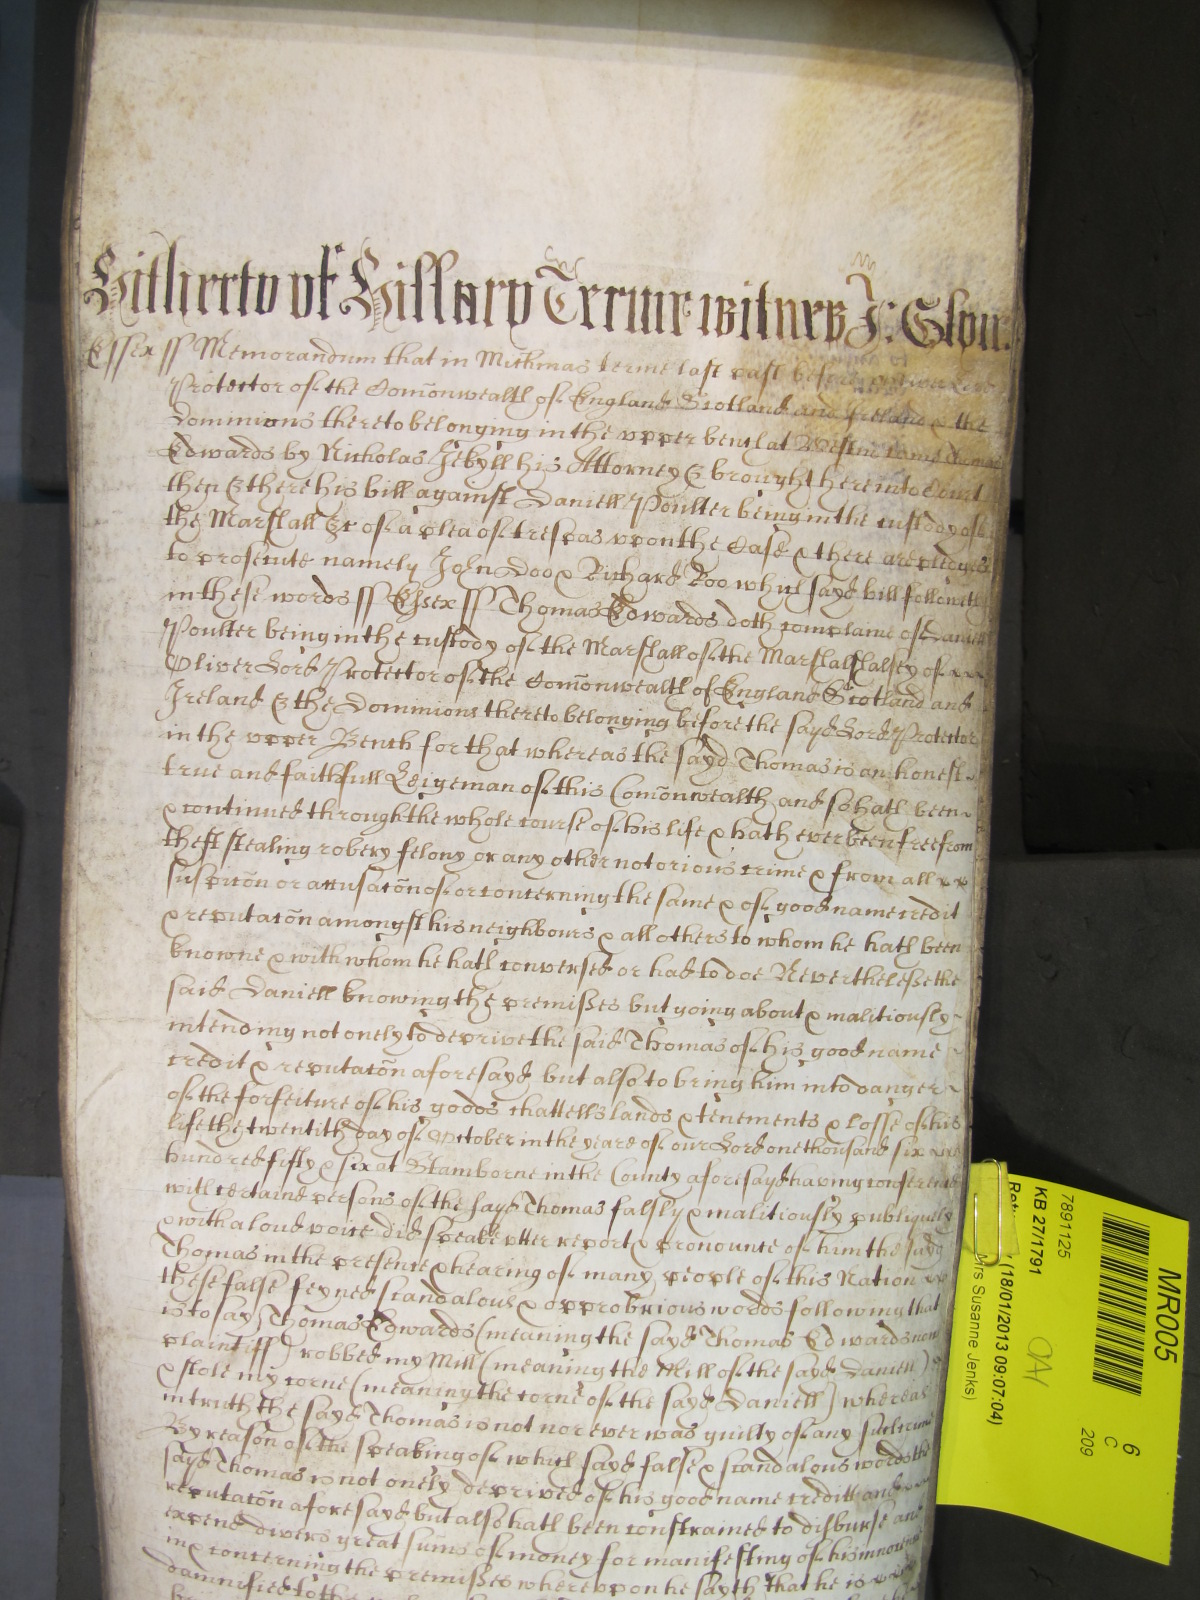 Hitherto of Hillary Terme witnes J: Glyn:
Essex ss Memorandum that in Michmas terme last past before Oliver Lord
Protector of the Com̃onwealth of England Scotland and Ireland & the
dominions thereto belonging in the upper bench at Westm̃ came Thomas
Edwards by Nicholas Jekyll his Attorney & brought here into Court
then & there his bill against Daniell Poulter being in the custody of
the Marshall &c of a plea of trespas upon the Case & there are pledges
to prosecute namely John Doo & Richard Roo which sayd bill followeth
in these words ss Essex ss Thomas Edwards doth complaine of Daniell
Poulter being in the custody of the Marshall of the Marshalshalsey of
Oliver Lord Protector of the Com̃onwealth of England Scotland and
Ireland & the Dominions thereto belonging before the sayd Lord Protector
in the upper Bench for that whereas the sayd Thomas is an honest
true and faithfull Leigeman of this Com̃onwealth and so hath been
& continued through the whole course of his life & hath ever been free from
theft stealing robery felony or any other notorious crime & from all
suspic̃on or accusac̃on of or concerning the same & of good name credit
& reputac̃on amongst his neighbours & all others to whom he hath been
knowne & with whom he hath conversed or had to doe Neverthelesse the
said Daniell knowing the premisses but going about & malitiously
intending not onely to deprive the said Thomas of his good name
credit & reputac̃on aforesayd but also to bring him into danger
of the forfeiture of his goods chattells lands & tenements & losse of his
life the twentith day of October in the yeare of our Lord one thousand six
hundred fifty & six at Stamborne in the County aforesayd having conference
with certaine persons of the sayd Thomas falsly & malitiously publiquely
& with a loud voice did speake utter report & pronounce of him the sayd
Thomas in the presence & hearing of many people of this Nation
these false feyned scandalous & opprobrious words following that
is to say Thomas Edwards (meaning the sayd Thomas Edwards now
plaintiff) robbed my Mill (meaning the Mill of the sayd Daniell)
& stole my corne (meaning the corne of the sayd Daniell) whereas
in truth the sayd Thomas is not nor ever was guilty of any such crime
By reason of the speaking of which sayd false & scandalous words the
sayd Thomas is not onely deprived of his good name creditt and
reputac̃on aforesayd but also hath been constrained to disburse and
expend divers great sum̃s of money for manifesting of his innocence
in & concerning the premisses whereupon he sayth that he is
damnified to the
MR005
7891125
KB 27/1791
(18/01/2013 09:07:04)
Mrs Susanne Jenks)
6
C
209